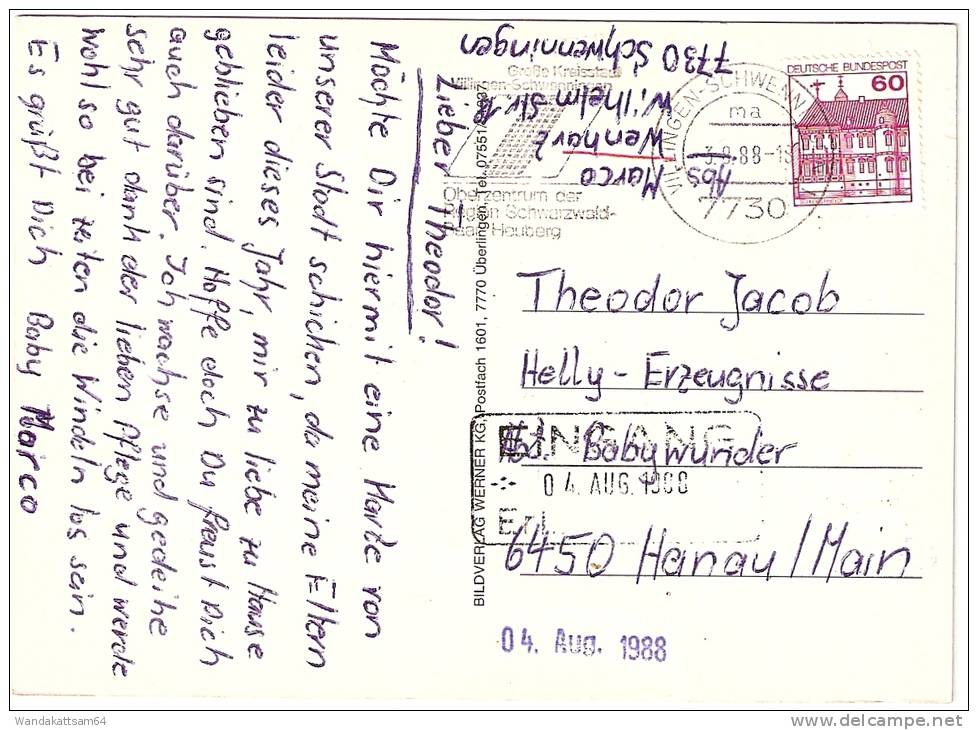 Lieber Theodor!
Möchte Dir hiermit eine Karte von
unserer Stadt schicken, da meine Eltern
leider dieses Jahr, mir zu liebe zu Hause
geblieben sind. Hoffe doch Du freust Dich
auch darüber. Ich wachse und gedeihe
sehr gut dank der lieben Pflege und werde
wohl so bei zeiten die Windeln los sein.
Es grüßt Dich Baby Marco
Abs
Marco
Wenharz
Wilhelm Str.
7730 Schwenningen
Große Kreisstadt
Villingen-Schwenningen
Oberzentrum der
Region Schwarzwald-
Baar-Heuberg
VILLINGEN-SCHWENN
ma
.88-1
7730
DEUTSCHE BUNDESPOST
60
BILDVERLAG WERNER KG, Postfach 1601, 7770 Überlingen, Tel. 07551/
Theodor Jacob
Helly - Erzeugnisse
Abt. Babywunder
6450 Hanau/Main
EINGANG
04. AUG. 1988
Erl.
04. Aug. 1988
Wandakattsam64
delcampe.net